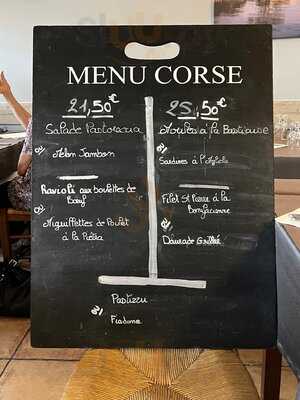 MENU CORSE
21,50€
Salade Pastorana
ou
Melon Jambon
Ravioli aux boulettes de
Bœuf
ou
Aiguillettes de Poulet
à la Pietra
25,50€
Moules à la Bastiaise
ou
Sardines à l'
Filet St Pierre à la
Bonifacienne
ou
Daurade Grillée
Pastizzu
ou
Fiadone